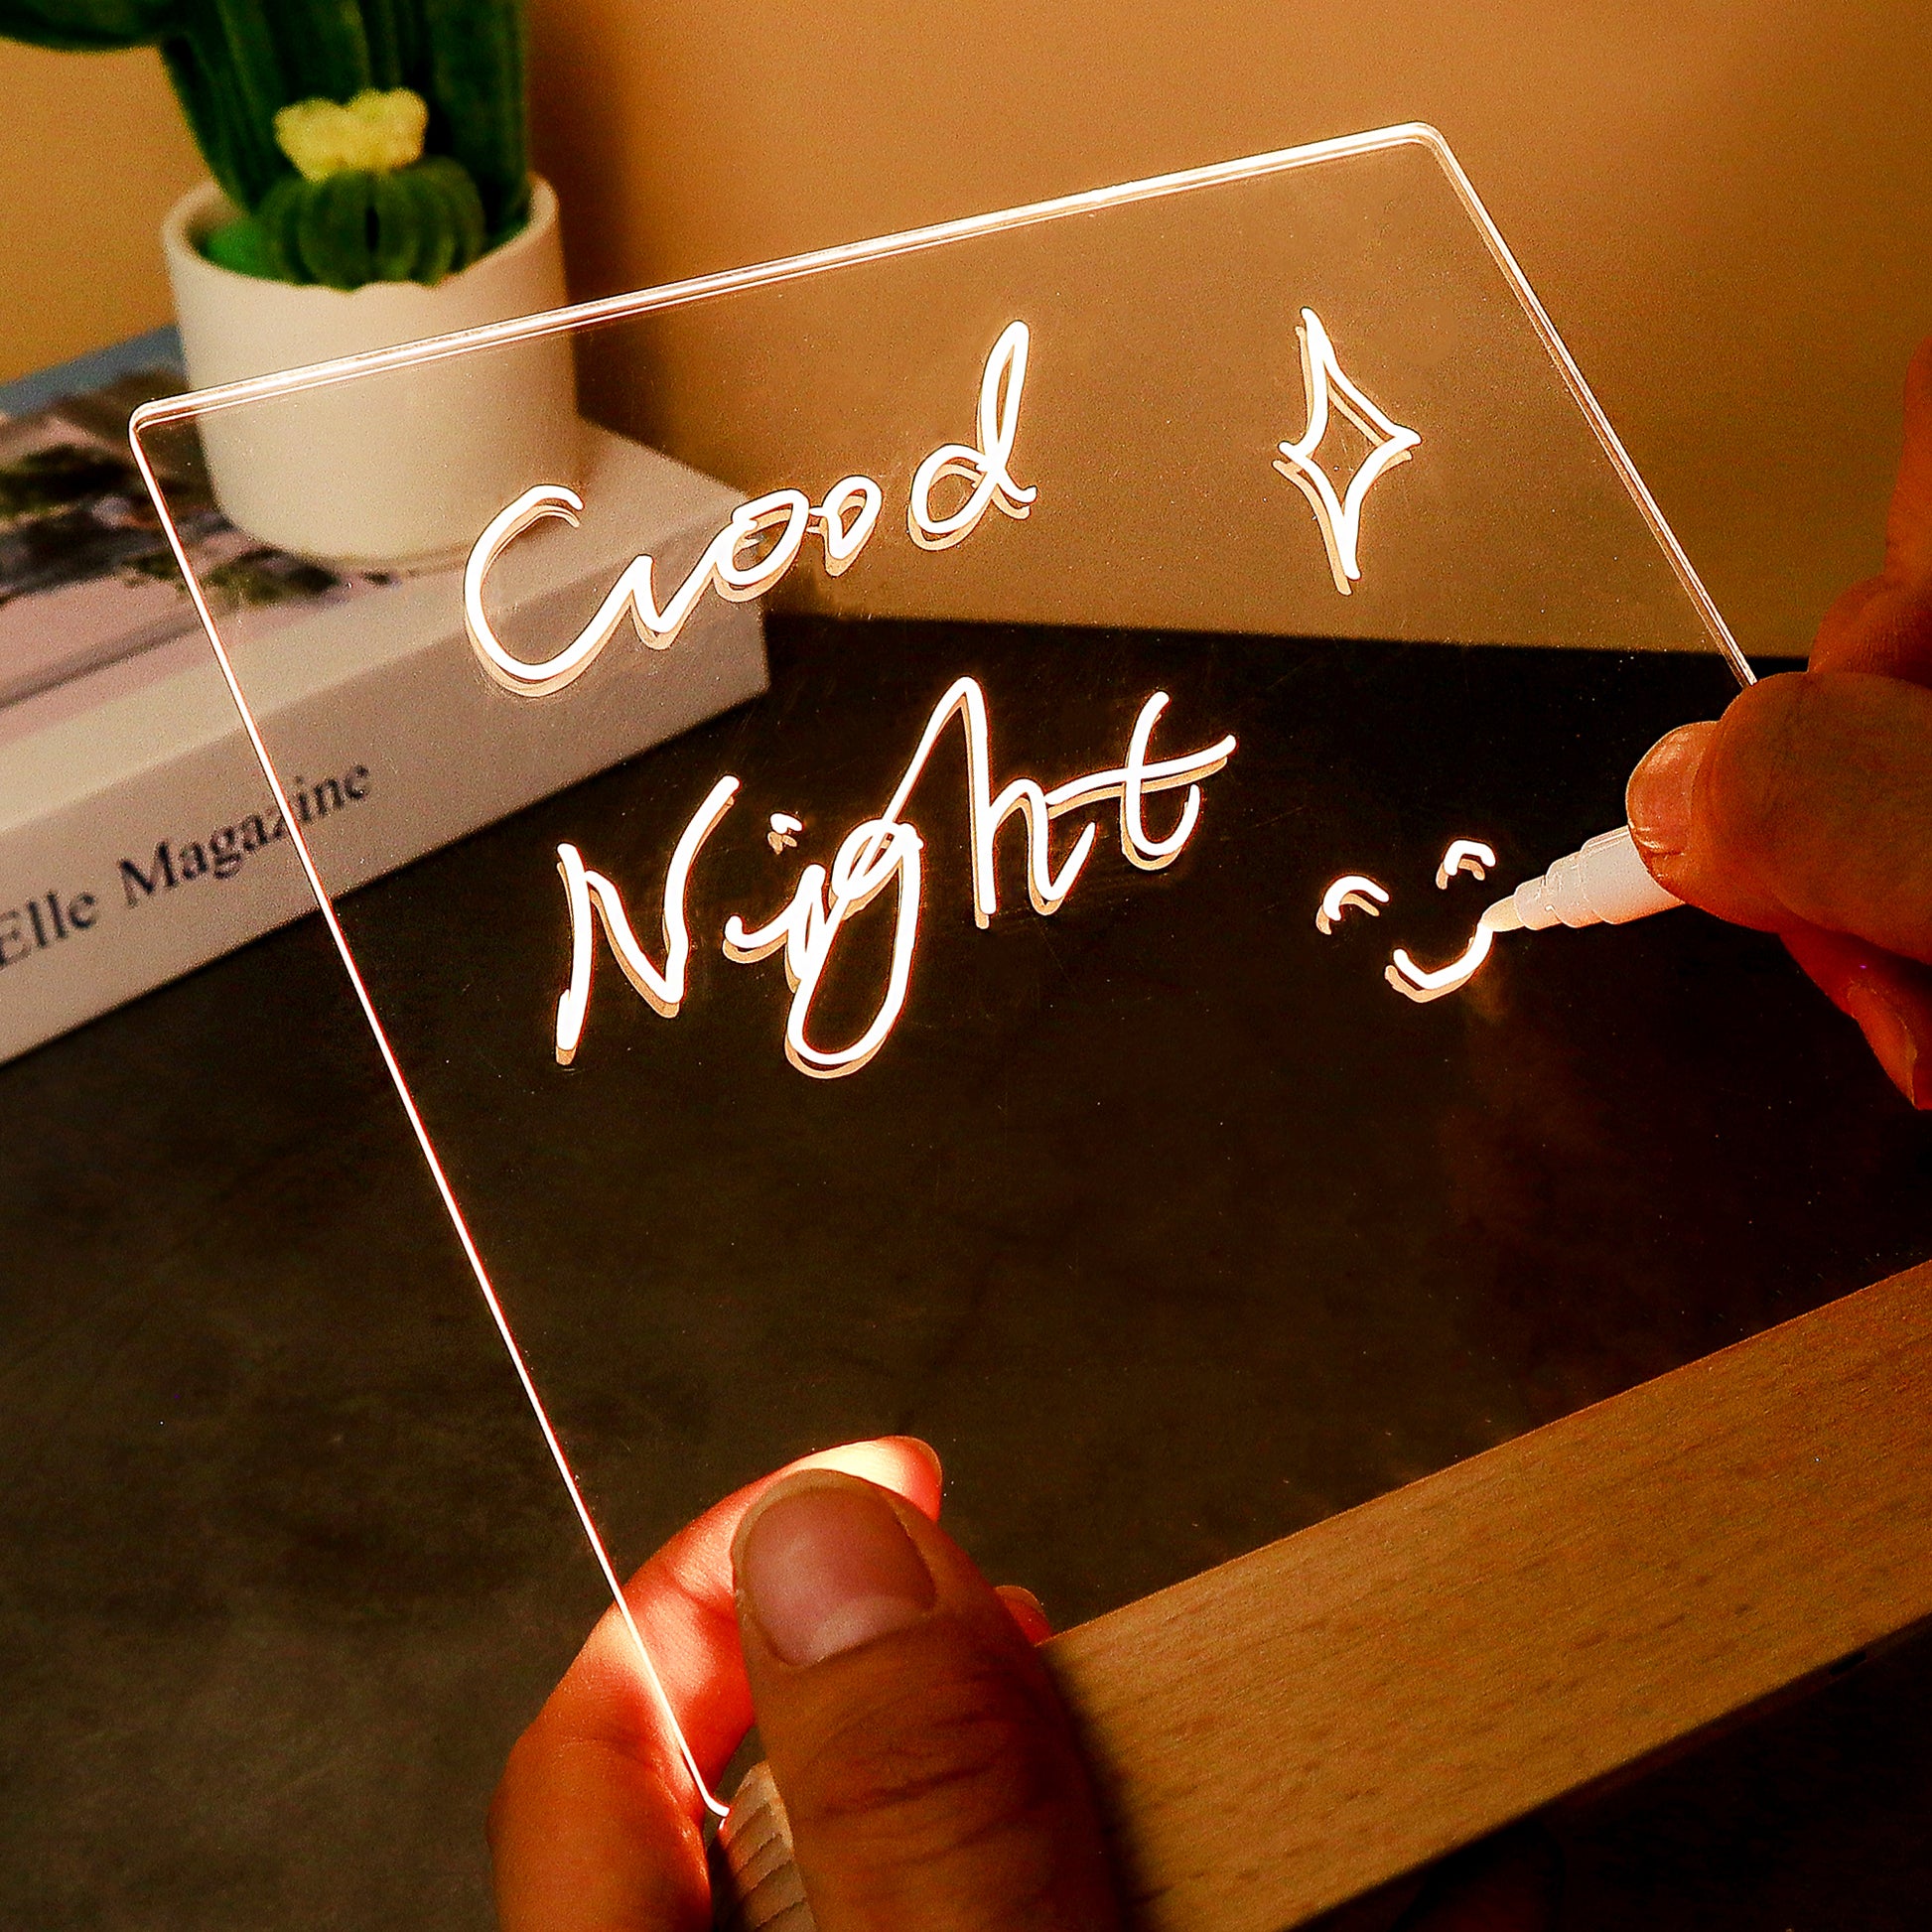 Good
Night
Elle Magazine